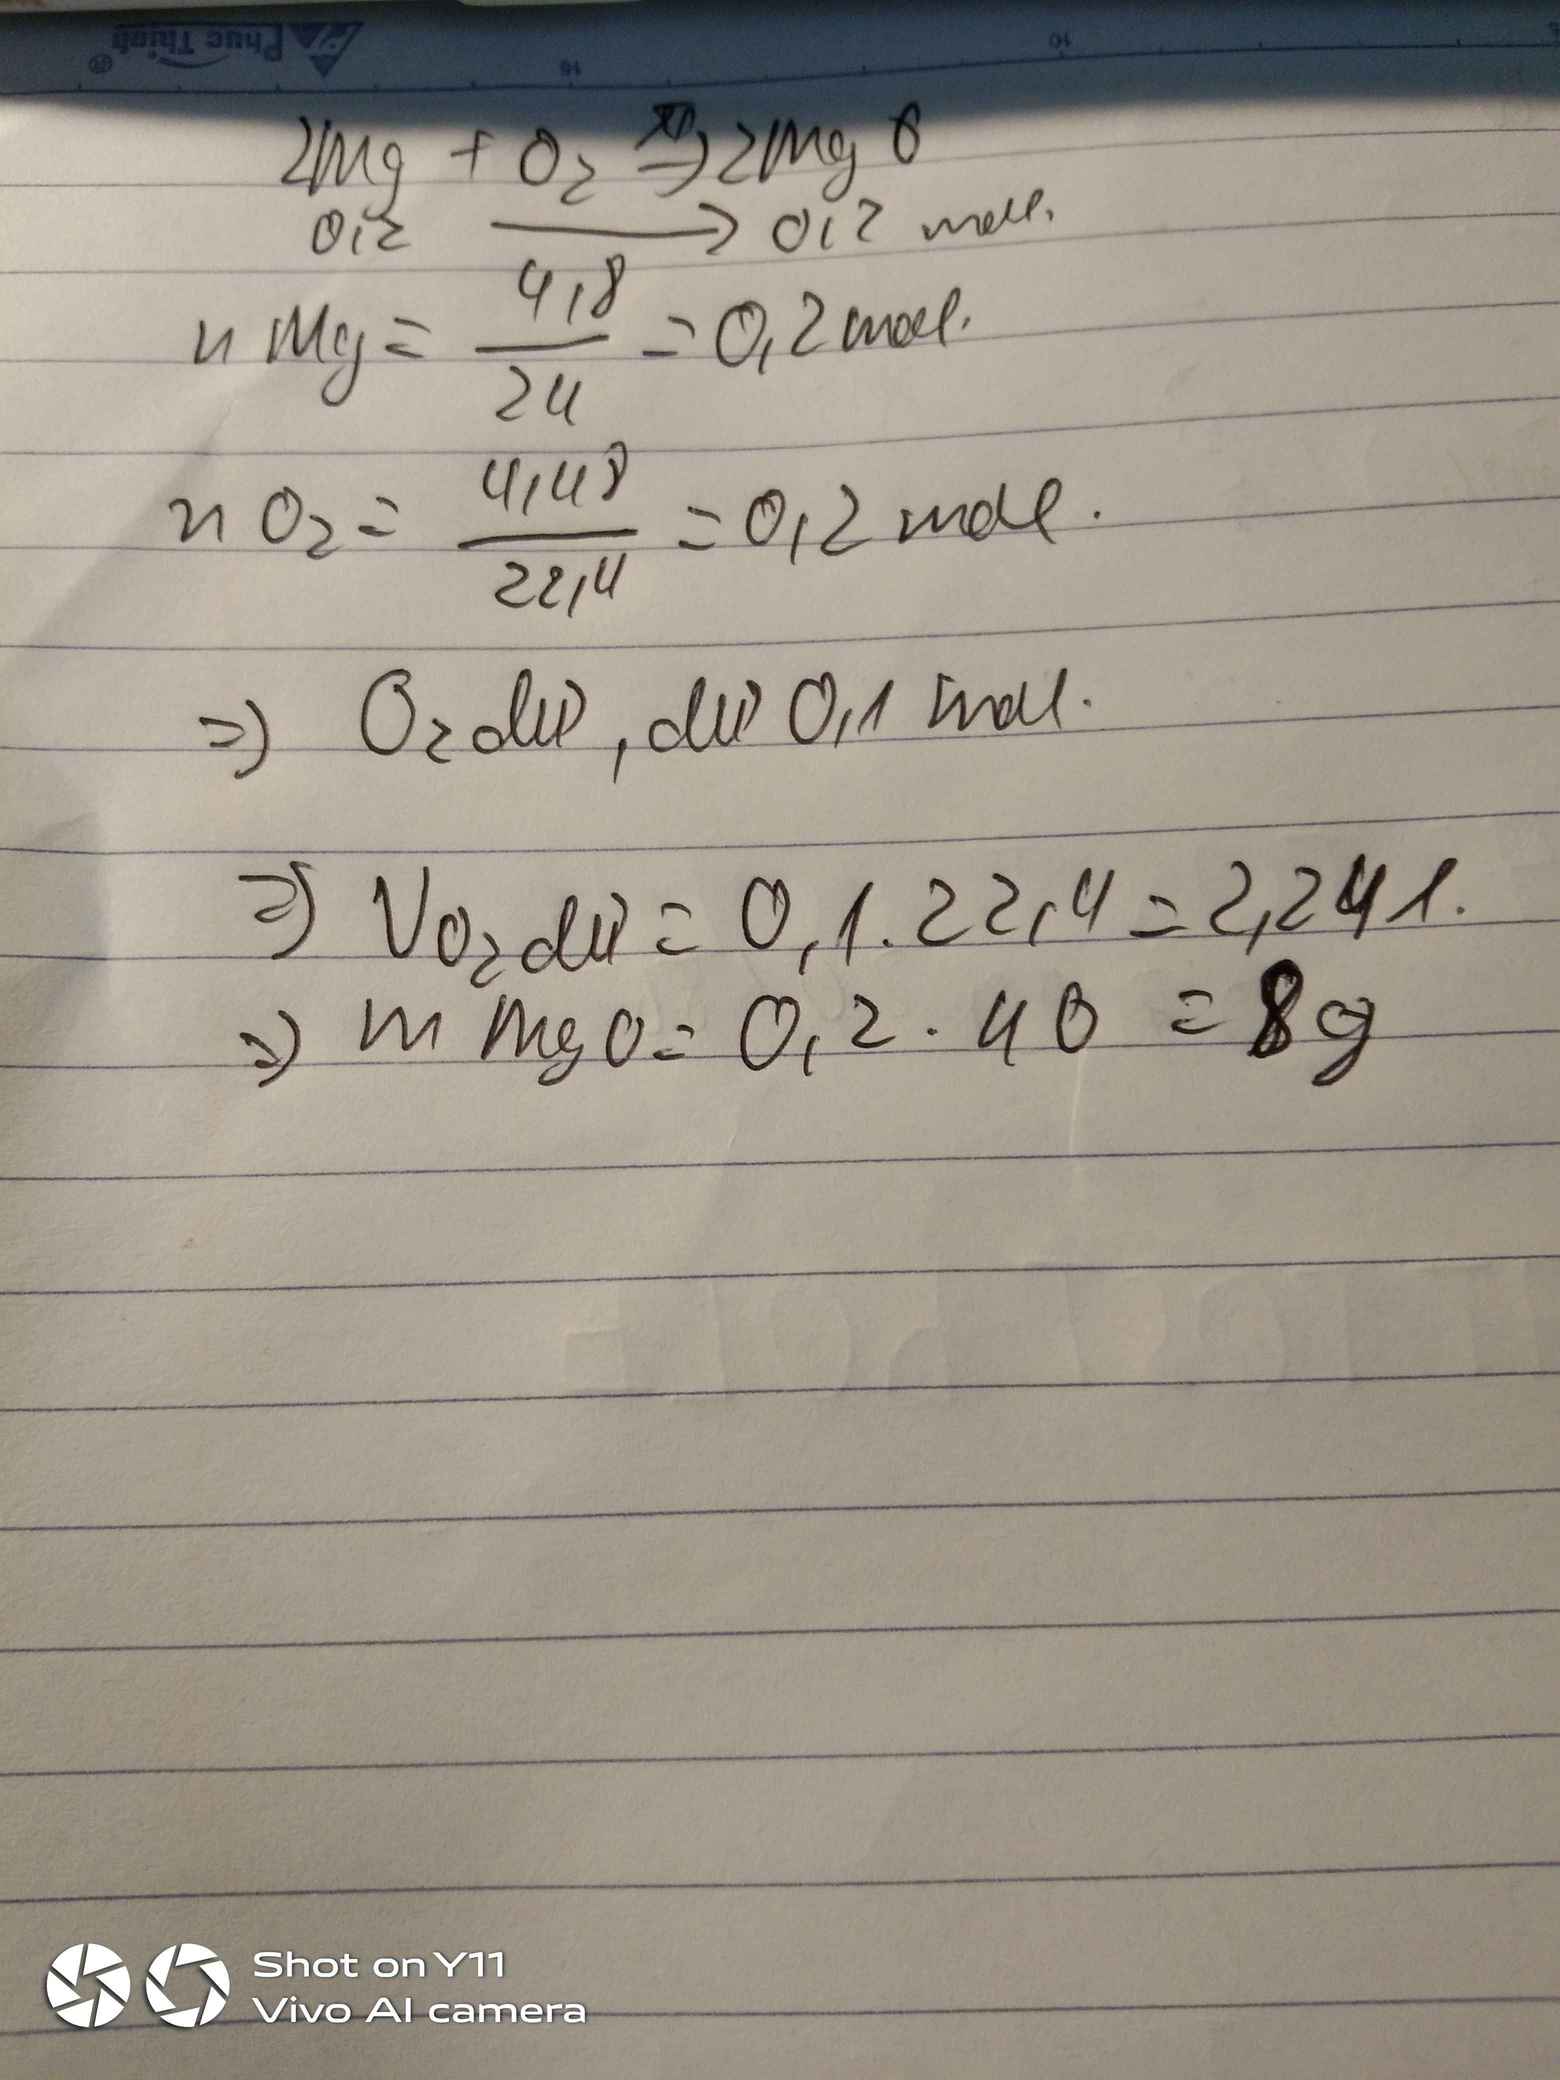 Phuc Thinh ®
16 10
2Mg + O2 -> 2MgO
0,2 -> 0,2 mol.
n Mg = 4,8 / 24 = 0,2 mol.
n O2 = 4,48 / 22,4 = 0,2 mol.
=> O2 dư, dư 0,1 mol.
=> VO2 dư = 0,1 . 22,4 = 2,24 l.
=> m MgO = 0,2 . 40 = 8g
Shot on Y11
Vivo AI camera